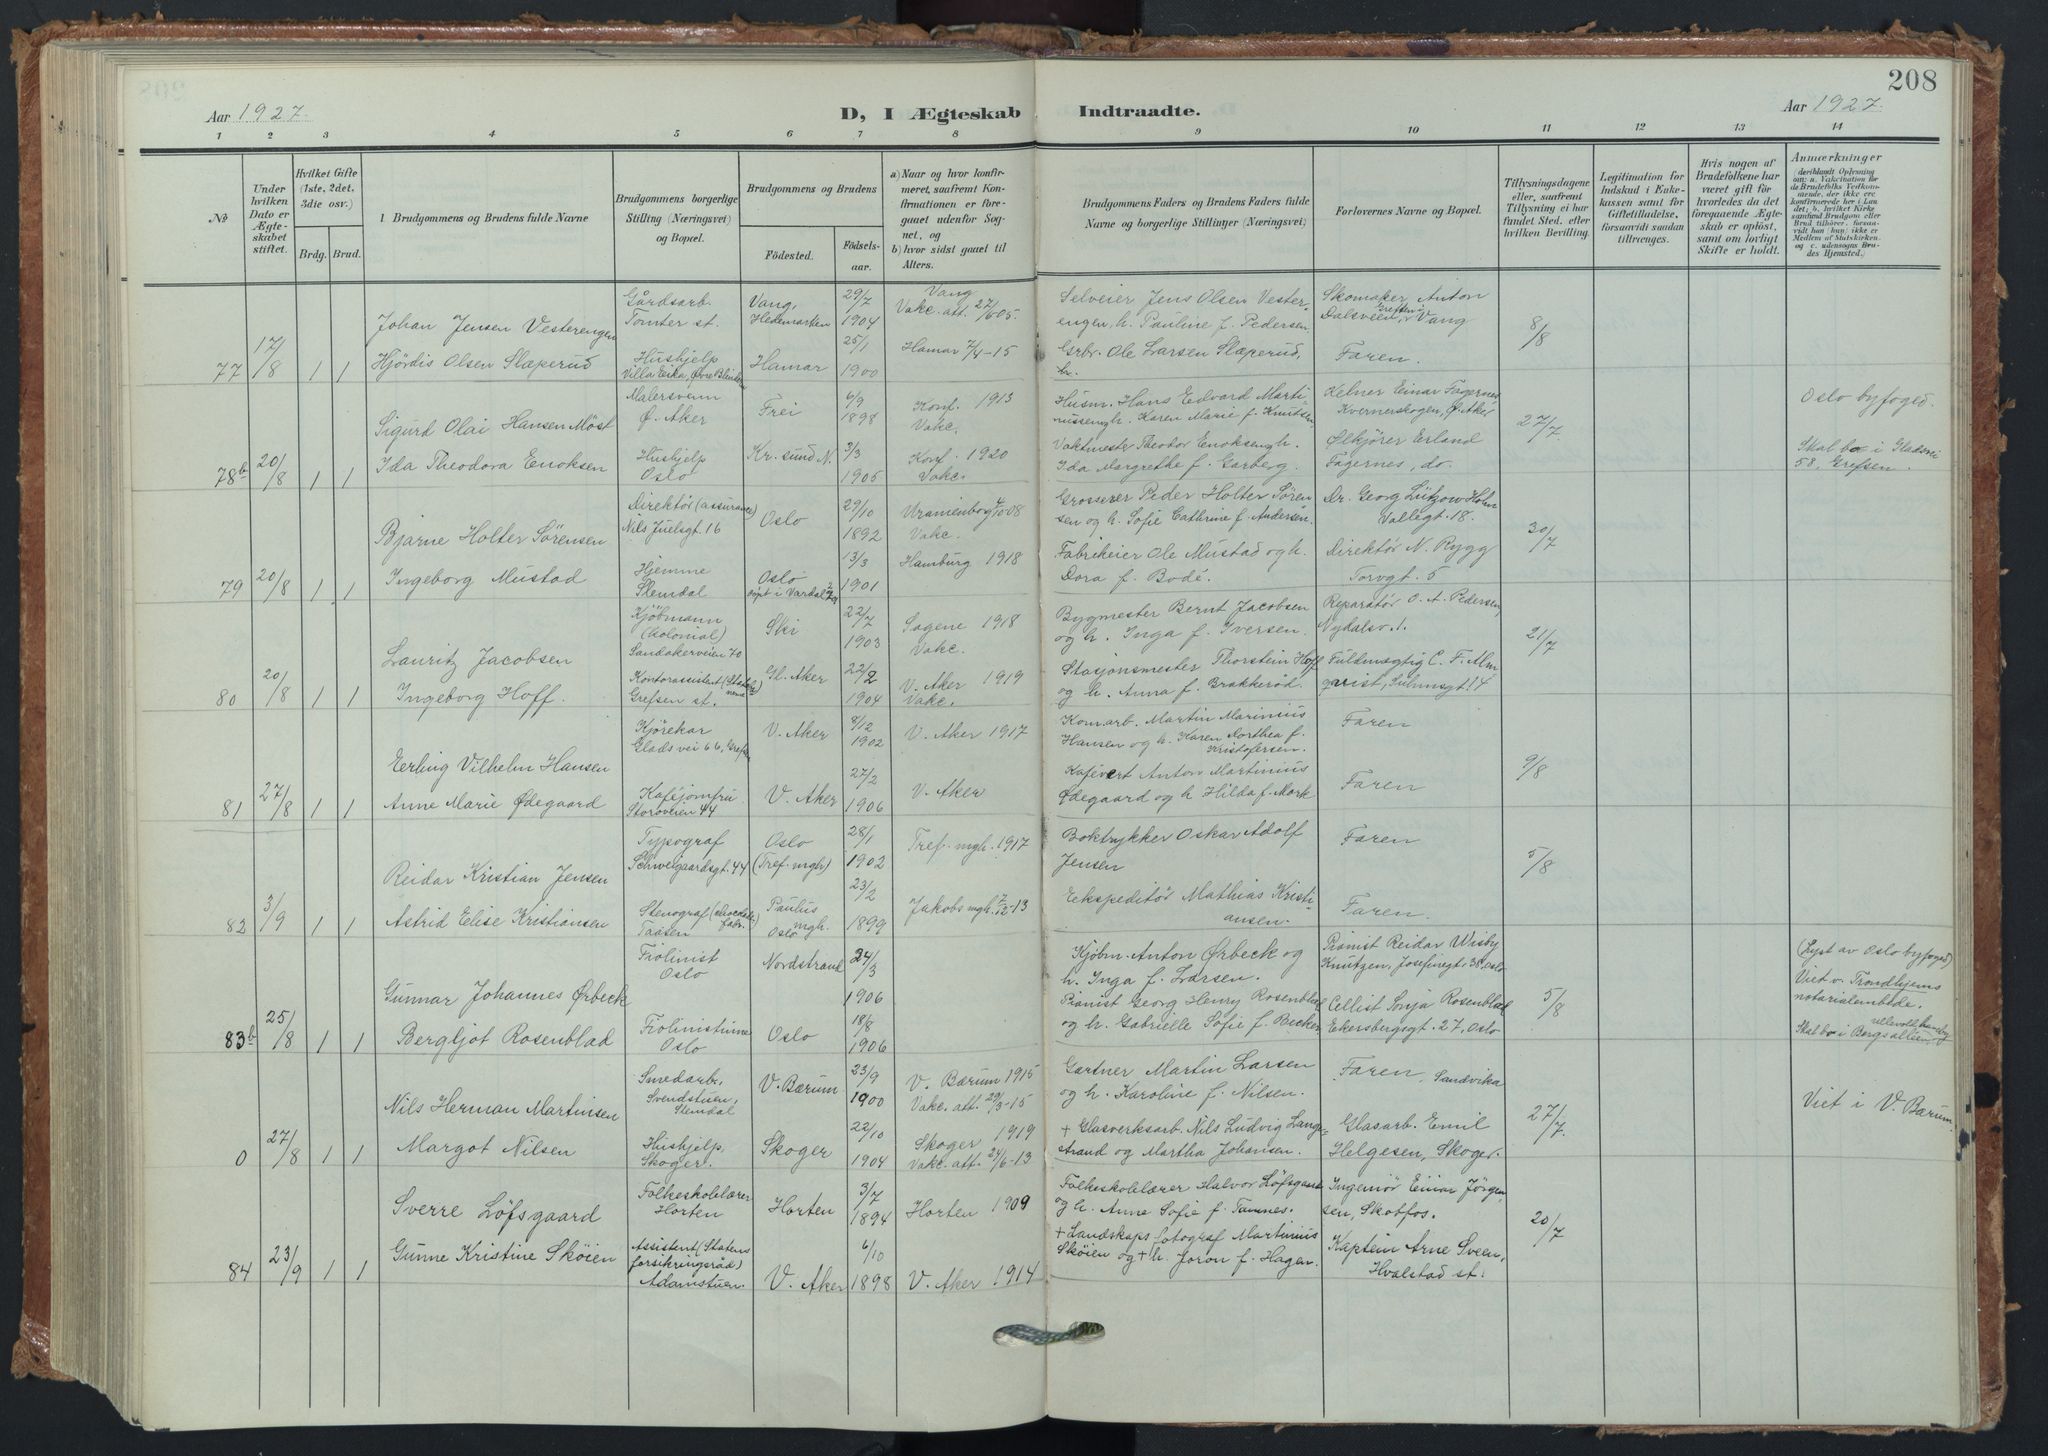 208
Aar 1927.
D, I Ægteskab Indtraadte.
Aar 1927.
1 2 3 4 5 6 7 8 9 10 11 12 13 14
No
Under hvilken Dato er Ægteskabet stiftet.
Hvilket Gifte (1ste, 2det, 3die osv.)
Brdg. Brud.
Brudgommens og Brudens fulde Navne
Brudgommens borgerlige Stilling (Næringsvei) og Bopæl.
Brudgommens og Brudens
Födested. Födselsaar.
a) Naar og hvor konfirmeret, saafremt Konfirmationen er foregaaet udenfor Sognet, og
b) hvor sidst gaaet til Alters.
Brudgommens Faders og Brudens Faders fulde Navne og borgerlige Stillinger (Næringsvei)
Forlovernes Navne og Bopæl.
Tillysningsdagene eller, saafremt Tillysning ei har fundet Sted, efter hvilken Bevilling.
Legitimation for Indskud i Enkekassen samt for Giftetilladelse, forsaavidt saadan tiltrenges.
Hvis nogen af Brudefolkene har været gift för hvorledes da det foregaaende Ægteskab er oplöst, samt om lovligt Skifte er holdt.
Anmærkninger
77 17/8 1 1
Johan Jensen Vesterengen
Gårdsarb. Tomter st.
Vang, Hedemarken 29/7 1904
Vang Vakc. att. 27/6 05.
Selveier Jens Olsen Vesterengen, h. Pauline f. Pedersen.
Skomaker Anton Dalsveen, Vang
8/8
Hjørdis Olsen Slæperud
Hushjelp Villa Eika, Øvre Blindern
Hamar 25/1 1900
Hamar 7/4-15
Grbr. Ole Larsen Slæperud, h.
Faren.
78b 20/8 1 1
Sigurd Olai Hansen Möst
Malersvenn Ø. Aker
Frei 6/9 1898
Konf. 1913 Vakc.
Husm. Hans Edvard Martinussen og h. Karen Marie f. Knutsen
Kelner Einar Fagernes Kvernerskogen, Ø. Aker
27/7
Oslo byfoged.
Ida Theodora Enoksen
Hushjelp Oslo
Kr. sund N. 3/3 1905
Konf. 1920 Vakc.
Vaktmester Theodor Enoksen og h. Ida Margrethe f. Garberg.
Ølkjörer Erland Fagernes, do.
Skal bo i Gladsvei 58, Grefsen.
79 20/8 1 1
Bjarne Holter Sörensen
Direktör (assurance) Nils Juelsgt 16
Oslo 29/10 1892
Uranienborg 4/10-08 Vakc.
Grosserer Peder Holter Sörensen og h. Sofie Cathrine f. Andersen.
Dr. Georg Lützow Holm Vallegt. 18.
30/7
Ingeborg Mustad
Hjemme Slemdal
Oslo döpt i Vardal 13/3 1901
Hamburg 1918
Fabrikeier Ole Mustad og h. Dora f. Bodé.
Direktör N. Rygg Torvgt. 5
80 20/8 1 1
Lauritz Jacobsen
Kjöbmann (kolonial) Sandakerveien 70
Ski 22/7 1903
Sagene 1918 Vakc.
Bygmester Bernt Jacobsen og h. Inga f. Iversen.
Reparatör O. A. Pedersen, Nydalsv. 1.
21/7
Ingeborg Hoff.
Kontorassistent Grefsen st.
Gl. Aker 22/2 1904
V. Aker 1919 Vakc.
Stasjonsmester Thorstein Hoff og h. Anna f. Brakkeröd.
Fuldmægtig C. F. Almqvist
81 27/8 1 1
Erling Vilhelm Hansen
Kjörekar Glads vei 66, Grefsen
V. Aker 8/12 1902
V. Aker 1917
Komarb. Martin Marinius Hansen og h. Karen Dorthea f. Kristofersen.
Faren
9/8
Anne Marie Ødegaard
Kaféjomfru Storoveien 44
V. Aker 27/2 1906
V. Aker
Kafévert Anton Martinius Ødegaard og h Hilda f. Mork
Faren
82 3/9 1 1
Reidar Kristian Jensen
Typograf Schweigaardsgt. 44
Oslo (Tref. mgh.) 28/1 1902
Tref. mgh. 1917
Boktrykker Oskar Adolf Jensen
Faren
5/8
Astrid Elise Kristiansen
Stenograf Taasen
Paulus mgh. Oslo 23/2 1899
Jakobs mgh. 7/12-13
Ekspeditör Mathias Kristiansen.
Faren.
83b 25/8 1 1
Gunnar Johannes Ørbeck
Fiolinist Oslo
Nordstrand 24/3 1906
Kjøbm. Anton Ørbeck og h. Inga f. Larsen.
Pianist Reidar Wisby Knutzen, Josefinegt. 38, Oslo
5/8
(Lyst av Oslo byfoged) Viet v. Trondhjems notarialembede.
Bergljot Rosenblad
Fiolinistinne Oslo
Oslo 18/8 1906
Pianist Georg Henry Rosenblad og h. Gabrielle Sofie f. Becker
Cellist Sonja Rosenblad Eckersbergsgt. 27, Oslo
Skal bo i Bergsalleen, Ullevoll haveby
0 27/8 1 1
Nils Herman Martinsen
Smedarb. Svendstuen, Slemdal
V. Bærum 23/9 1900
V. Bærum 1915 Vakc. att. 29/3-15
Gartner Martin Larsen og h. Karoline f. Nilsen.
Faren, Sandvika
27/7.
Viet i V. Bærum.
Margot Nilsen
Hushjelp, Skoger.
Skoger 22/10 1904
Skoger 1919 Vakc. att. 24/6-13
+ Glasverksarb. Nils Ludvig Langestrand og Martha Johansen.
Glasarb. Emil Helgesen, Skoger.
84 23/9 1 1
Sverre Löfsgaard
Folkeskolelærer Horten
Horten 3/7 1894
Horten 1909
Folkeskolelærer Halvor Löfsgaard og h. Anne Sofie f. Tamnes.
Ingeniör Einar Jörgensen, Skotfos.
20/7
Gunne Kristine Sköien
Assistent (Statens forsikringsråd) Adamstuen.
V. Aker 6/10 1898
V. Aker 1914
+ Landskapsfotograf Martinius Sköien og + h. Joron f. Hagen.
Kaptein Arne Sveen, Hvalstad st.